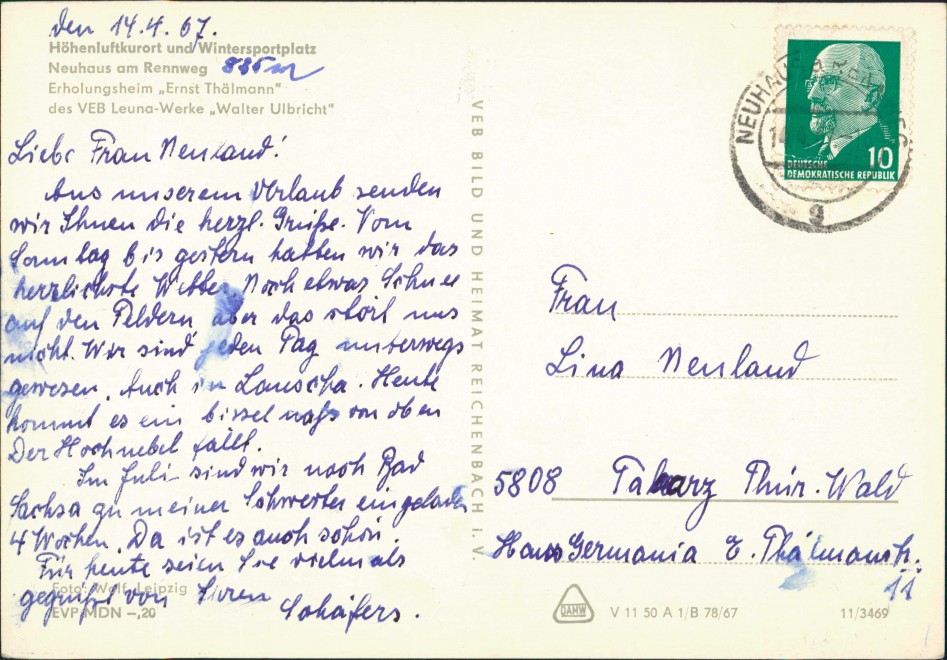 den 14.4.67.
Höhenluftkurort und Wintersportplatz
Neuhaus am Rennweg 835 m
Erholungsheim „Ernst Thälmann"
des VEB Leuna-Werke „Walter Ulbricht"
Liebe Frau Neuland!
Aus unserem Urlaub senden
wir Ihnen die herzl. Grüße. Vom
Sonntag bis gestern hatten wir das
herrlichste Wetter. Noch etwas Schnee
auf den Feldern, aber das stört uns
nicht. Wir sind jeden Tag unterwegs
gewesen. Auch in Lauscha. Heute
kommt es ein bissel naß von oben
Der Hochnebel fällt.
Im Juli sind wir nach Bad
Sachsa zu meiner Schwester eingeladen
4 Wochen. Da ist es auch schön.
Für heute seien Sie vielmals
Foto: Wolf, Leipzig
gegrüßt von Ihren
Schäfers.
EVP MDN –,20
VEB BILD UND HEIMAT REICHENBACH i. V.
NEUHAUS
DEUTSCHE
DEMOKRATISCHE REPUBLIK
10
Frau
Lina Neuland
5808 Tabarz Thür. Wald
Haus Germania E. Thälmannstr.
11
DAMW
V 11 50 A 1/B 78/67
11/3469